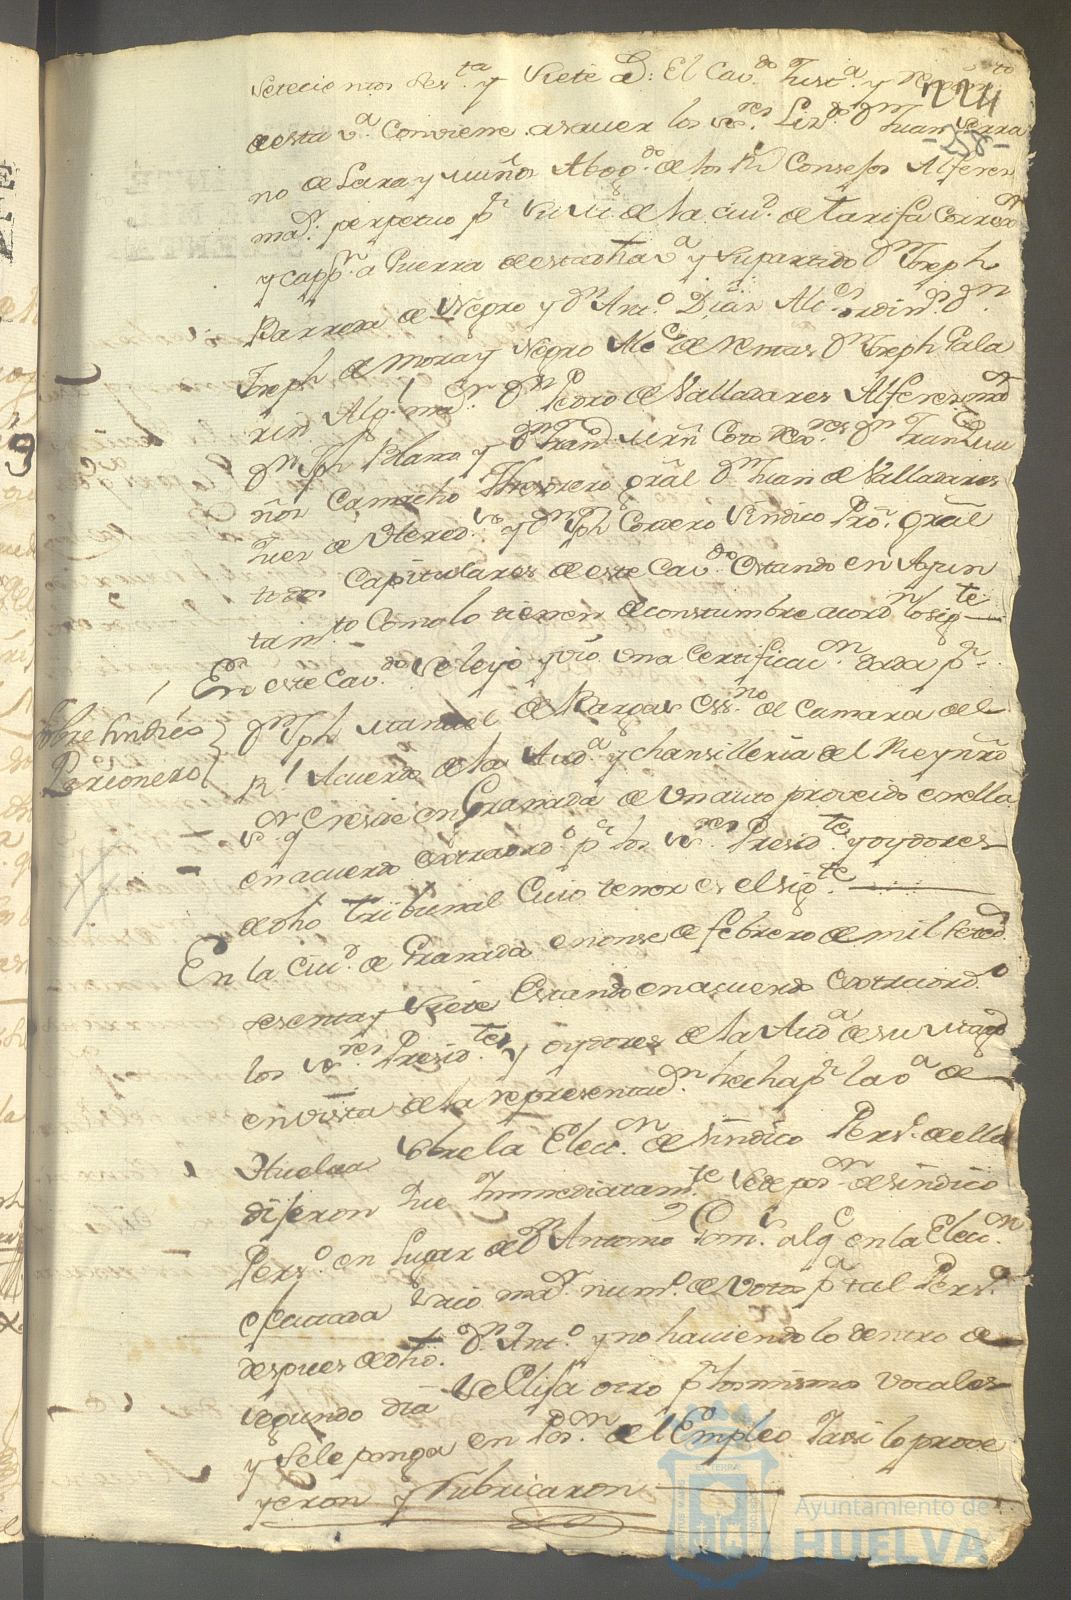 setecientos ses.ta y siete as: El Cav.do Just.a y Regim.to
224
de esta v.a Conviene asaver los ss.res Lizdo. Dn. Juan Serra
-258-
no de Lara y Muños Abog.do de los Rs Consejos Alferes
mas. perpetuo pr. su M. de la ciud. de Tarifa Correxor
y capp.n a Guerra de esta dha v.a y su partido Dn. Joseph
Barrera de Negro y Dn. Ant.o Dias Alc.es ordins. Dn.
Joseph de Mora y Negro Alc.e de Rentas Dn. Joseph Gala
rin Alg.l mor. Dn. Pedro de Valladares Alferes mor
Dn. Jph Blanco y Dn. Fran.co Mrn Coro Rexo.res Dn. Juan Qui
ñon Camacho Thesorero gral Dn. Juan de Valladares
Jues de Hered.s y Dn. Jph Cordero Sindico Pror. gral
todos Capitulares de este Cav.do Estando en Ayun
tam.to Como lo tienen de constumbre acordn lo sig.te
En este Cav.do se leyó y vió una Certificac.n dada pr.
Sobre Sindico
Personero
Dn. Jph Manuel de Bargas Ess.no de Camara del
R.l Acuerdo de la Aud.a y chansilleria del Rey nro
sr. q reside en Granada de un auto proveido en ella
en acuerdo extraord.o pr los ss.res Presid.te y oydores
de dho Tribunal Cuio tenor es el sig.te
En la Ciud. de Granada en onse de febrero de mil setecs.
sesenta y siete Estando en acuerdo extraord.o
los ss.res Presid.te y oydores de la Aud.a de su Magd
en vista de la representac.n hecha pr la v.a de
Huelva sobre la Elecc.n de Sindico Pers.o de ella
dijeron Que Immediatam.te se de pos.on de sindico
Pers.o en Lugar de Dn. Antonio al q en la Elecc.n
efectuada tuvo mar. num.o de votos pa. tal Pers.o
despues de dho. Dn. Ant.o y no haviendolo dentro de
segundo dia se Elija otro pr los mismos vocales
y se le ponga en Pos.on del Empleo Y asi lo prove
yeron y rubricaron
Ayuntamiento de
HUELVA